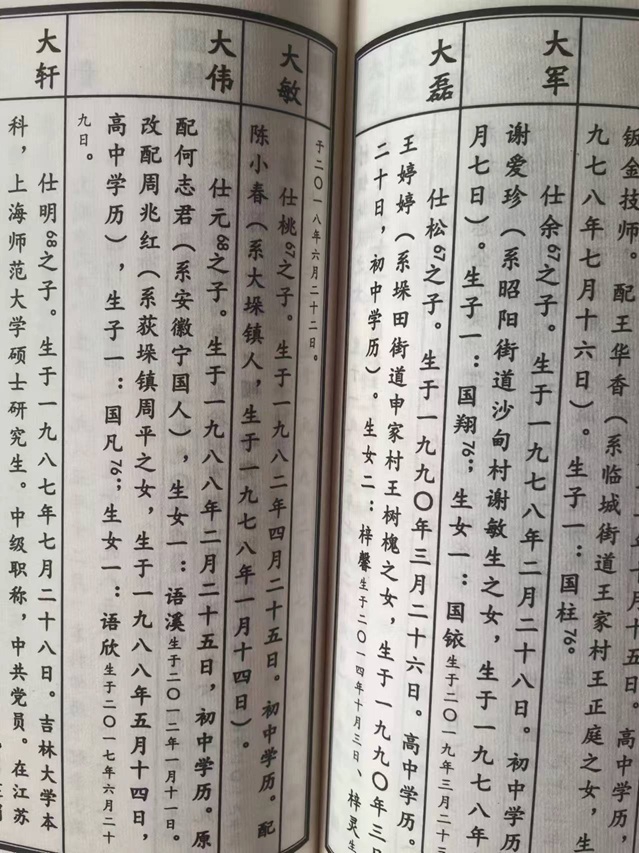 钣金技师。配王华香（系临城街道王家村王正庭之女，生
九七八年七月十六日）。生子一：国柱76。
大军
仕余67之子。生于一九七八年二月二十八日。初中学历
谢爱珍（系昭阳街道沙甸村谢敏生之女，生于一九七八年
月七日）。生子一：国翔76；生女一：国铱生于二〇一九年三月二十三
大磊
仕松67之子。生于一九九〇年三月二十六日。高中学历。
王婷婷（系垛田街道申家村王树槐之女，生于一九九〇年三
二十日，初中学历）。生女二：梓馨生于二〇一四年十月三日、梓灵生
于二〇一八年六月二十二日。
大敏
仕桃67之子。生于一九八二年四月二十五日。初中学历。配
陈小春（系大垛镇人，生于一九七八年一月十四日）。
大伟
仕元68之子。生于一九八八年二月二十五日，初中学历。原
配何志君（系安徽宁国人），生女一：语溪生于二〇一二年一月十一日。
改配周兆红（系荻垛镇周平之女，生于一九八八年五月十四日，
高中学历），生子一：国凡76；生女一：语欣生于二〇一七年六月二十
九日。
大轩
仕明68之子。生于一九八七年七月二十八日。吉林大学本
科，上海师范大学硕士研究生。中级职称，中共党员。在江苏